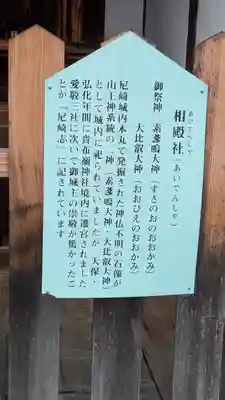 相殿社(あいでんしゃ)
あいでんしゃ
御祭神 素盞嗚大神(すさのおのおおかみ)
大比叡大神(おおひえのおおかみ)
尼崎城内本丸で発掘された神仏不明の石像が
山王神系統の二神(素盞嗚大神・大比叡大神)
として城内に祀られていましたが 天保・
弘化年間に貴布禰神社境内に遷宮されました
愛敬三社に次いで御城主の崇敬が篤かったこ
とが『尼崎志』に記されています